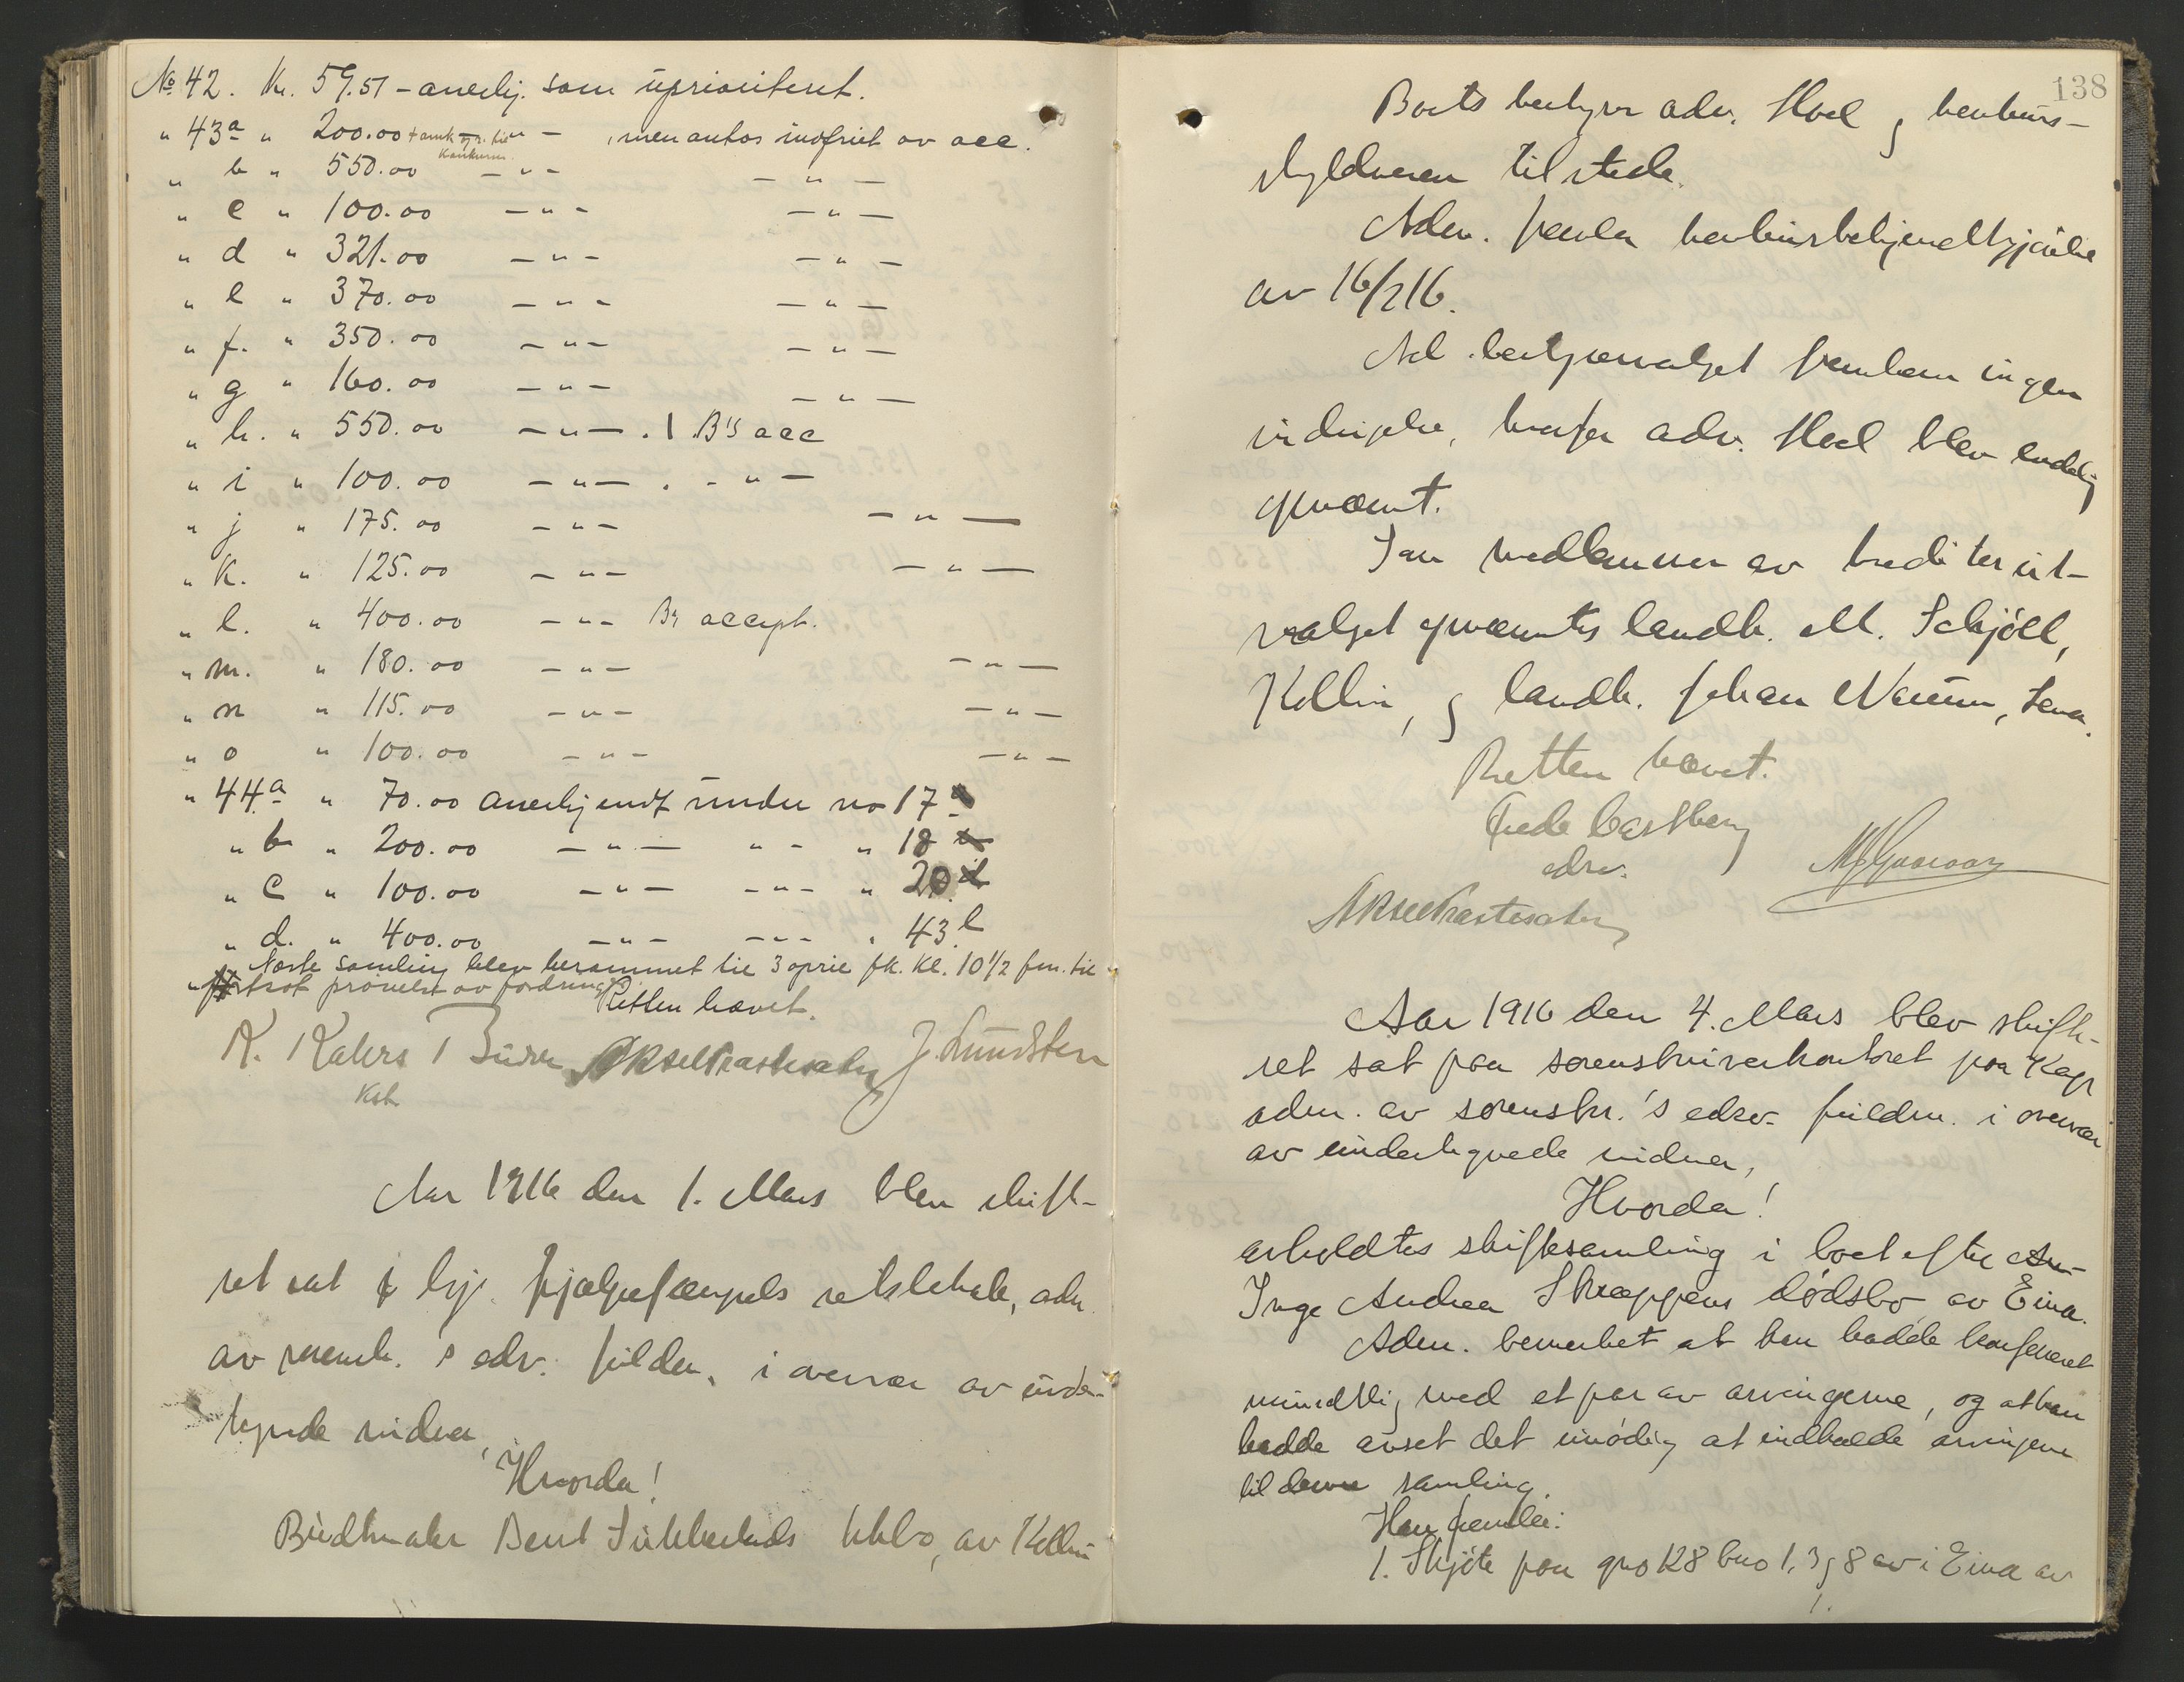 No 42. Kr. 59.51 - anerkj. som uprioritert.
" 43a " 200.00 + omk. og r. til konkursen - " - , men antas indfriet av acc.
" b " 550.00 - " - - " -
" c " 100.00 - " - - " -
" d " 321.00 - " - - " -
" e " 370.00 - " - - " -
" f. " 350.00 - " - - " -
" g " 160.00 - " - - " -
" h. " 550.00 - " - . B's acc
" i " 100.00 - " - . - " -
" j " 175.00 - " - - " -
" k. " 125.00 - " - - " -
" l. " 400.00 - " - B's accept.
" m. " 180.00 - " - - " -
" n " 115.00 - " - - " -
" o " 100.00 - " - - " -
" 44a " 70.00 anerkjendt under no 17
" b " 200.00 - " - " - " 18
" c " 100.00 - " - - " - " 20
" d. " 400.00 - " - - " - " 43 l
Næste samling blev berammet til 3 april fk. kl. 10 1/2 fm. til
fortsat prøvelse av fordringer
Retten hævet.
K. Kahrs J. Lundsten
Aar 1916 den 1. Mars blev skift-
ret sat i hjelpefængsels retslokale, adm.
av sorenskr.'s edsv. fuldm. i overvær av under-
tegnede vidner,
Hvorda!
Bundtmaker Bent Kkbo, av Kolbu
138
Boets bestyrer adv. Hoel og konkurs-
skyldneren tilstede.
Adm. fremla konkursbekjendtgjørelse
av 16/2 16.
Ad. bestyrervalget fremkom ingen
indsigelse, hvorfor adv. Hoel blev endelig
opnævnt.
Som medlemmer av kreditorut-
valget opnævntes landh. M. Schjöll,
Kolbu, og landh. Johan Narum, Lena.
Retten hævet.
Frede Castberg
edsv.
Aar 1916 den 4. Mars blev skift-
ret sat paa sorenskriverkontoret paa Kap
adm. av sorenskr.'s edsv. fuldm. i overvær
av undertegnede vidner,
Hvorda!
avholdtes skiftesamling i boet efter
Inge Andrea Skræppens dødsbo av Eina.
Adm. bemerket at han hadde konfereret
mundtlig med et par av arvingerne, og at han
hadde anset det unødig at indkalde arvingene
til denne samling.
Han fremla:
1. Skjøte paa gno 128 bno 1, 3 og 8 av i Eina av